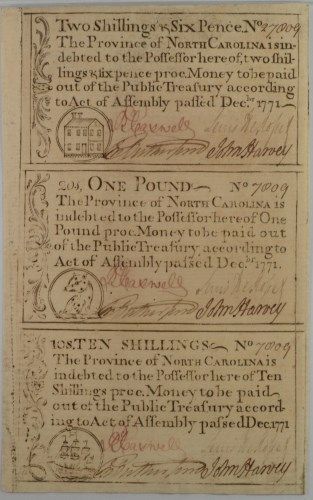 Two Shillings & Six Pence. No 7809
The Province of North Carolina is in-
debted to the Possessor here of, two shil-
lings & six pence proc. Money to be paid
out of the Public Treasury according
to Act of Assembly passed Decbr. 1771.
Rutherfurd John Harvey
20s, ONE POUND No 7809
The Province of North Carolina is
indebted to the Possessor here of One
Pound proc. Money to be paid out
of the Public Treasury according to
Act of Assembly passed Decbr. 1771.
Rutherfurd John Harvey
10s. TEN SHILLINGS No 7809
The Province of North Carolina is
indebted to the Possessor here of Ten
Shillings proc. Money to be paid
out of the Public Treasury accord-
ing to Act of Assembly passed Dec. 1771
Rutherfurd John Harvey